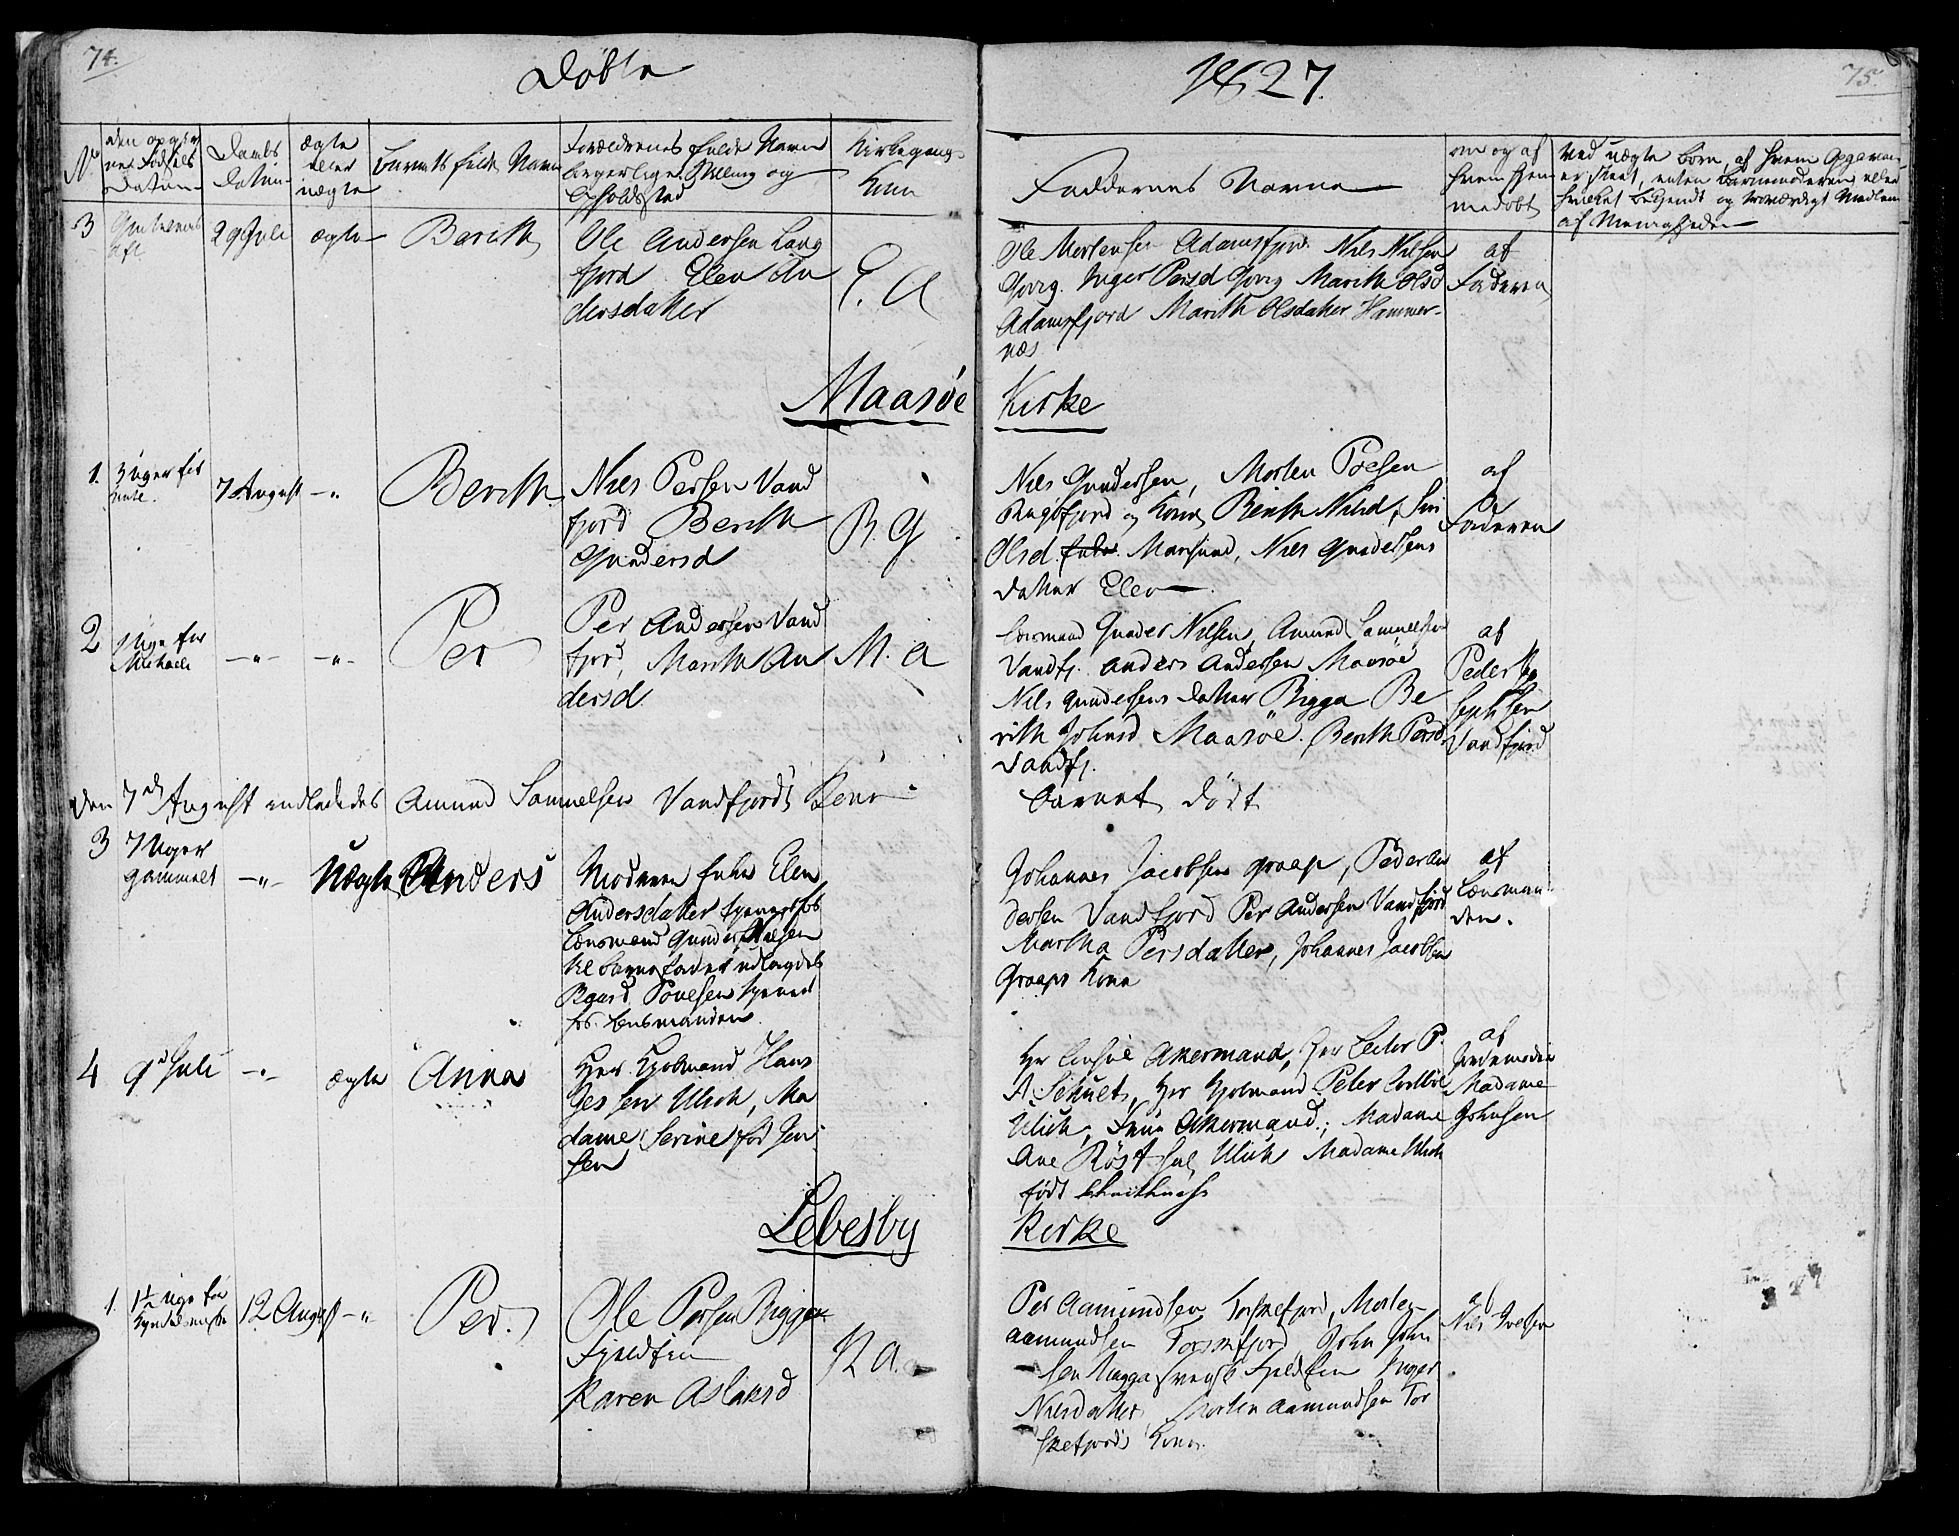 74.
Døbte
1827.
75.
No
den opgivne Fødsels Datum
Daabs Datum
ægte eller uægte
Barnets fulde Navn
Forældrenes fulde Navn borgerlige Stilling og Opholdssted
Kirkegangs Kone
Faddernes Navne
om og af hvem hjemmedøbt
ved uægte Børn, af hvem Opgaven er skeet, enten Barnemoderen eller hvilket bekjendt og troværdigt Medlem af Menigheden
3
29 Juli
ægte
Berith
Ole Andersen Lang
fjord Elen An
dersdatter
E. A
Ole Mortensen Adamsfjor. Niels Nilsen
Inger Persd Marith Olsd
Adamsfjord Marith Olsdatter Hammer-
næs
af
Faderen
Maasøe Kirke
1.
3 uger før
7 August
-"-
Berith
Niels Persen Vand
fjord Berith
Gundersd
B. G
Niels Gundersen, Morten Poelsen
og Kone Berith Nilsd, Siri
Olsd Enke Marsund, Niels Gundersens
datter Elen
af
Faderen
2
1 Uge før
Michaeli
-"-
-"-
Per
Per Andersen Vand
fjord, Marith An
dersd.
M. A
Lensmand Gunder Nilsen, Amund Samuelsen
Vandfj. Anders Andersen Maasøe
Nils Gundersens datter Bigga Be
rith Johnsd Maasøe. Berith Persd
Vandfj.
af
Peder
sen
Vandfjord
Den 7d August indledes Amund Samuelsen Vandfjords Kone
Barnet dødt
3
7 Uger
gammelt
-"-
Uægte
Anders
Moderen Enke Elen
Andersdatter tjenende hos
Lensmand Gunder Nilsen
til Barnefader udlagdes
Povelsen tjenende
hos Lensmanden
Johannes Jacobsen Graap, Peder An
dersen Vandfjord Per Andersen Vandfjord
Martha Persdatter, Johannes Jacobsen
Graaps Kone
af
Lensman
den.
4
9d Juli
-"-
ægte
Anna
Herr Kjøbmand Hans
Jessen Ulich, Ma
dame Serine fød Jen
sen
Hr Akermand, Herr P.
A. Schult, Hr Kjøbmand Peter
Ulich, Frue Akermand, Madame
Ane Røst Ulich Madame Ulich
født
af
Jordemoder
Madame
Johnsen
Lebesby Kirke
1.
1½ Uge før
Kyndelsmisse
12 August
-"-
Per.
Ole Persen Bigga
Fjeldfin
Karen Aslaksd
K A.
Per Aamundsen Torskefjord, Morten
Aamundsen Torskefjord, John John
sen Bigga svensk Fjeldfin Inger
Nilsdatter Morten Aamundsen Tor
skefjords Kone.
af
Nils Iversen